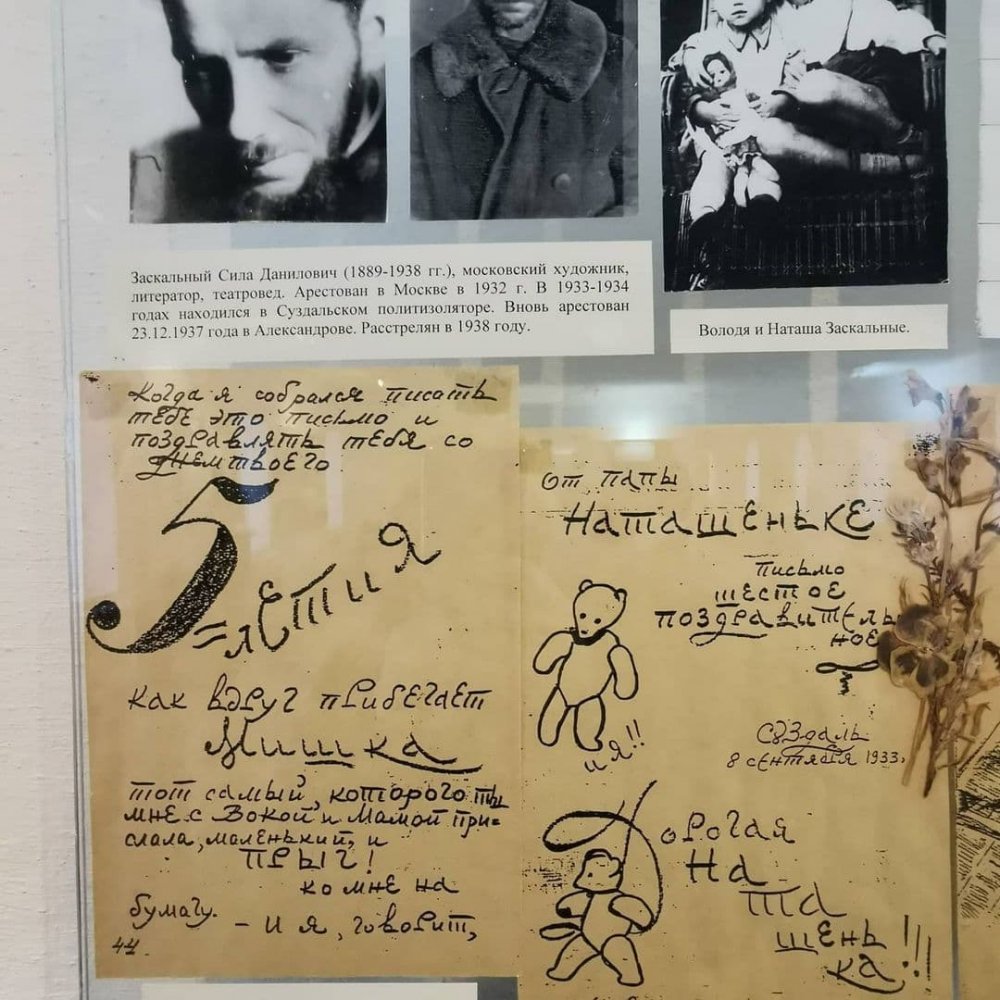 Заскальный Сила Данилович (1889-1938 гг.), московский художник,
литератор, театровед. Арестован в Москве в 1932 г. В 1933-1934
годах находился в Суздальском политизоляторе. Вновь арестован
23.12.1937 года в Александрове. Расстрелян в 1938 году.
Володя и Наташа Заскальные.
Когда я собрался писать
тебе это письмо и
поздравлять тебя со
днем твоего
5
=летия
как вдруг прибегает
Мишка
тот самый, которого ты
мне с Вокой и Мамой при=
слала, маленький, и
ПРЫГ!
ко мне на
бумагу.
- И я, говорит,
44.
от папы
Наташеньке
письмо
шестое
поздравитель
ное
и я!!
Суздаль
8 сентября 1933.
Дорогая
На
та
шень
ка!!!